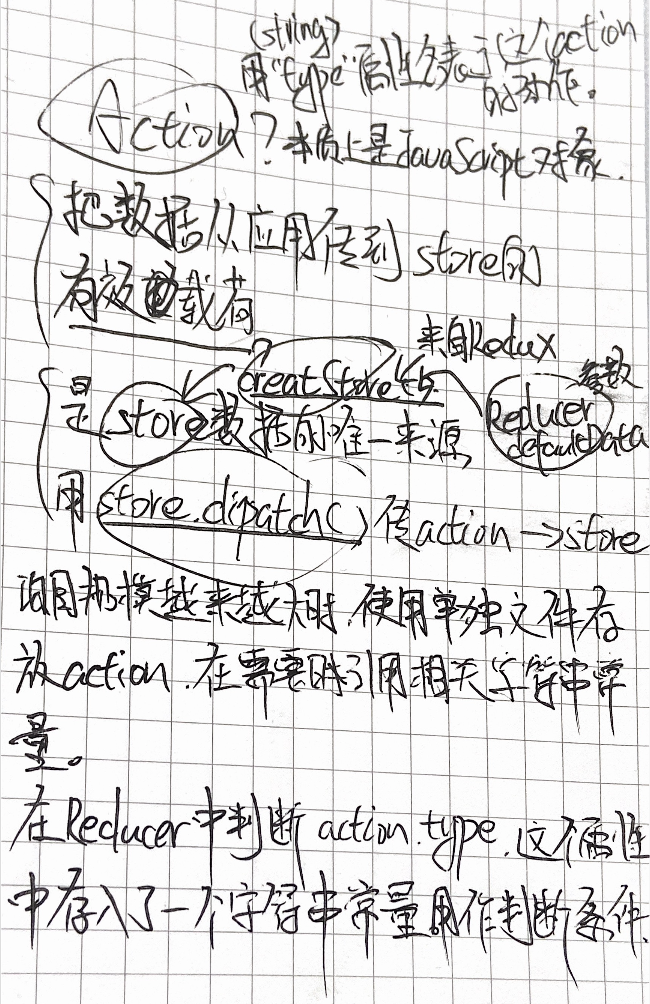 (string)
用"type"属性来表示这个action
的动作。
Action? 本质上是JavaScript对象.
把数据从应用传到store的
有效载荷
来自Redux
creatStore
参数
是store数据的唯一来源,
Reducer
defaultData
用store.dipatch()传action→store
应用规模越来越大时,使用单独文件存
放action.在需要时引用相关字符串常
量。
在Reducer中判断action.type,这个属性
中存入了一个字符串常量用作判断条件.